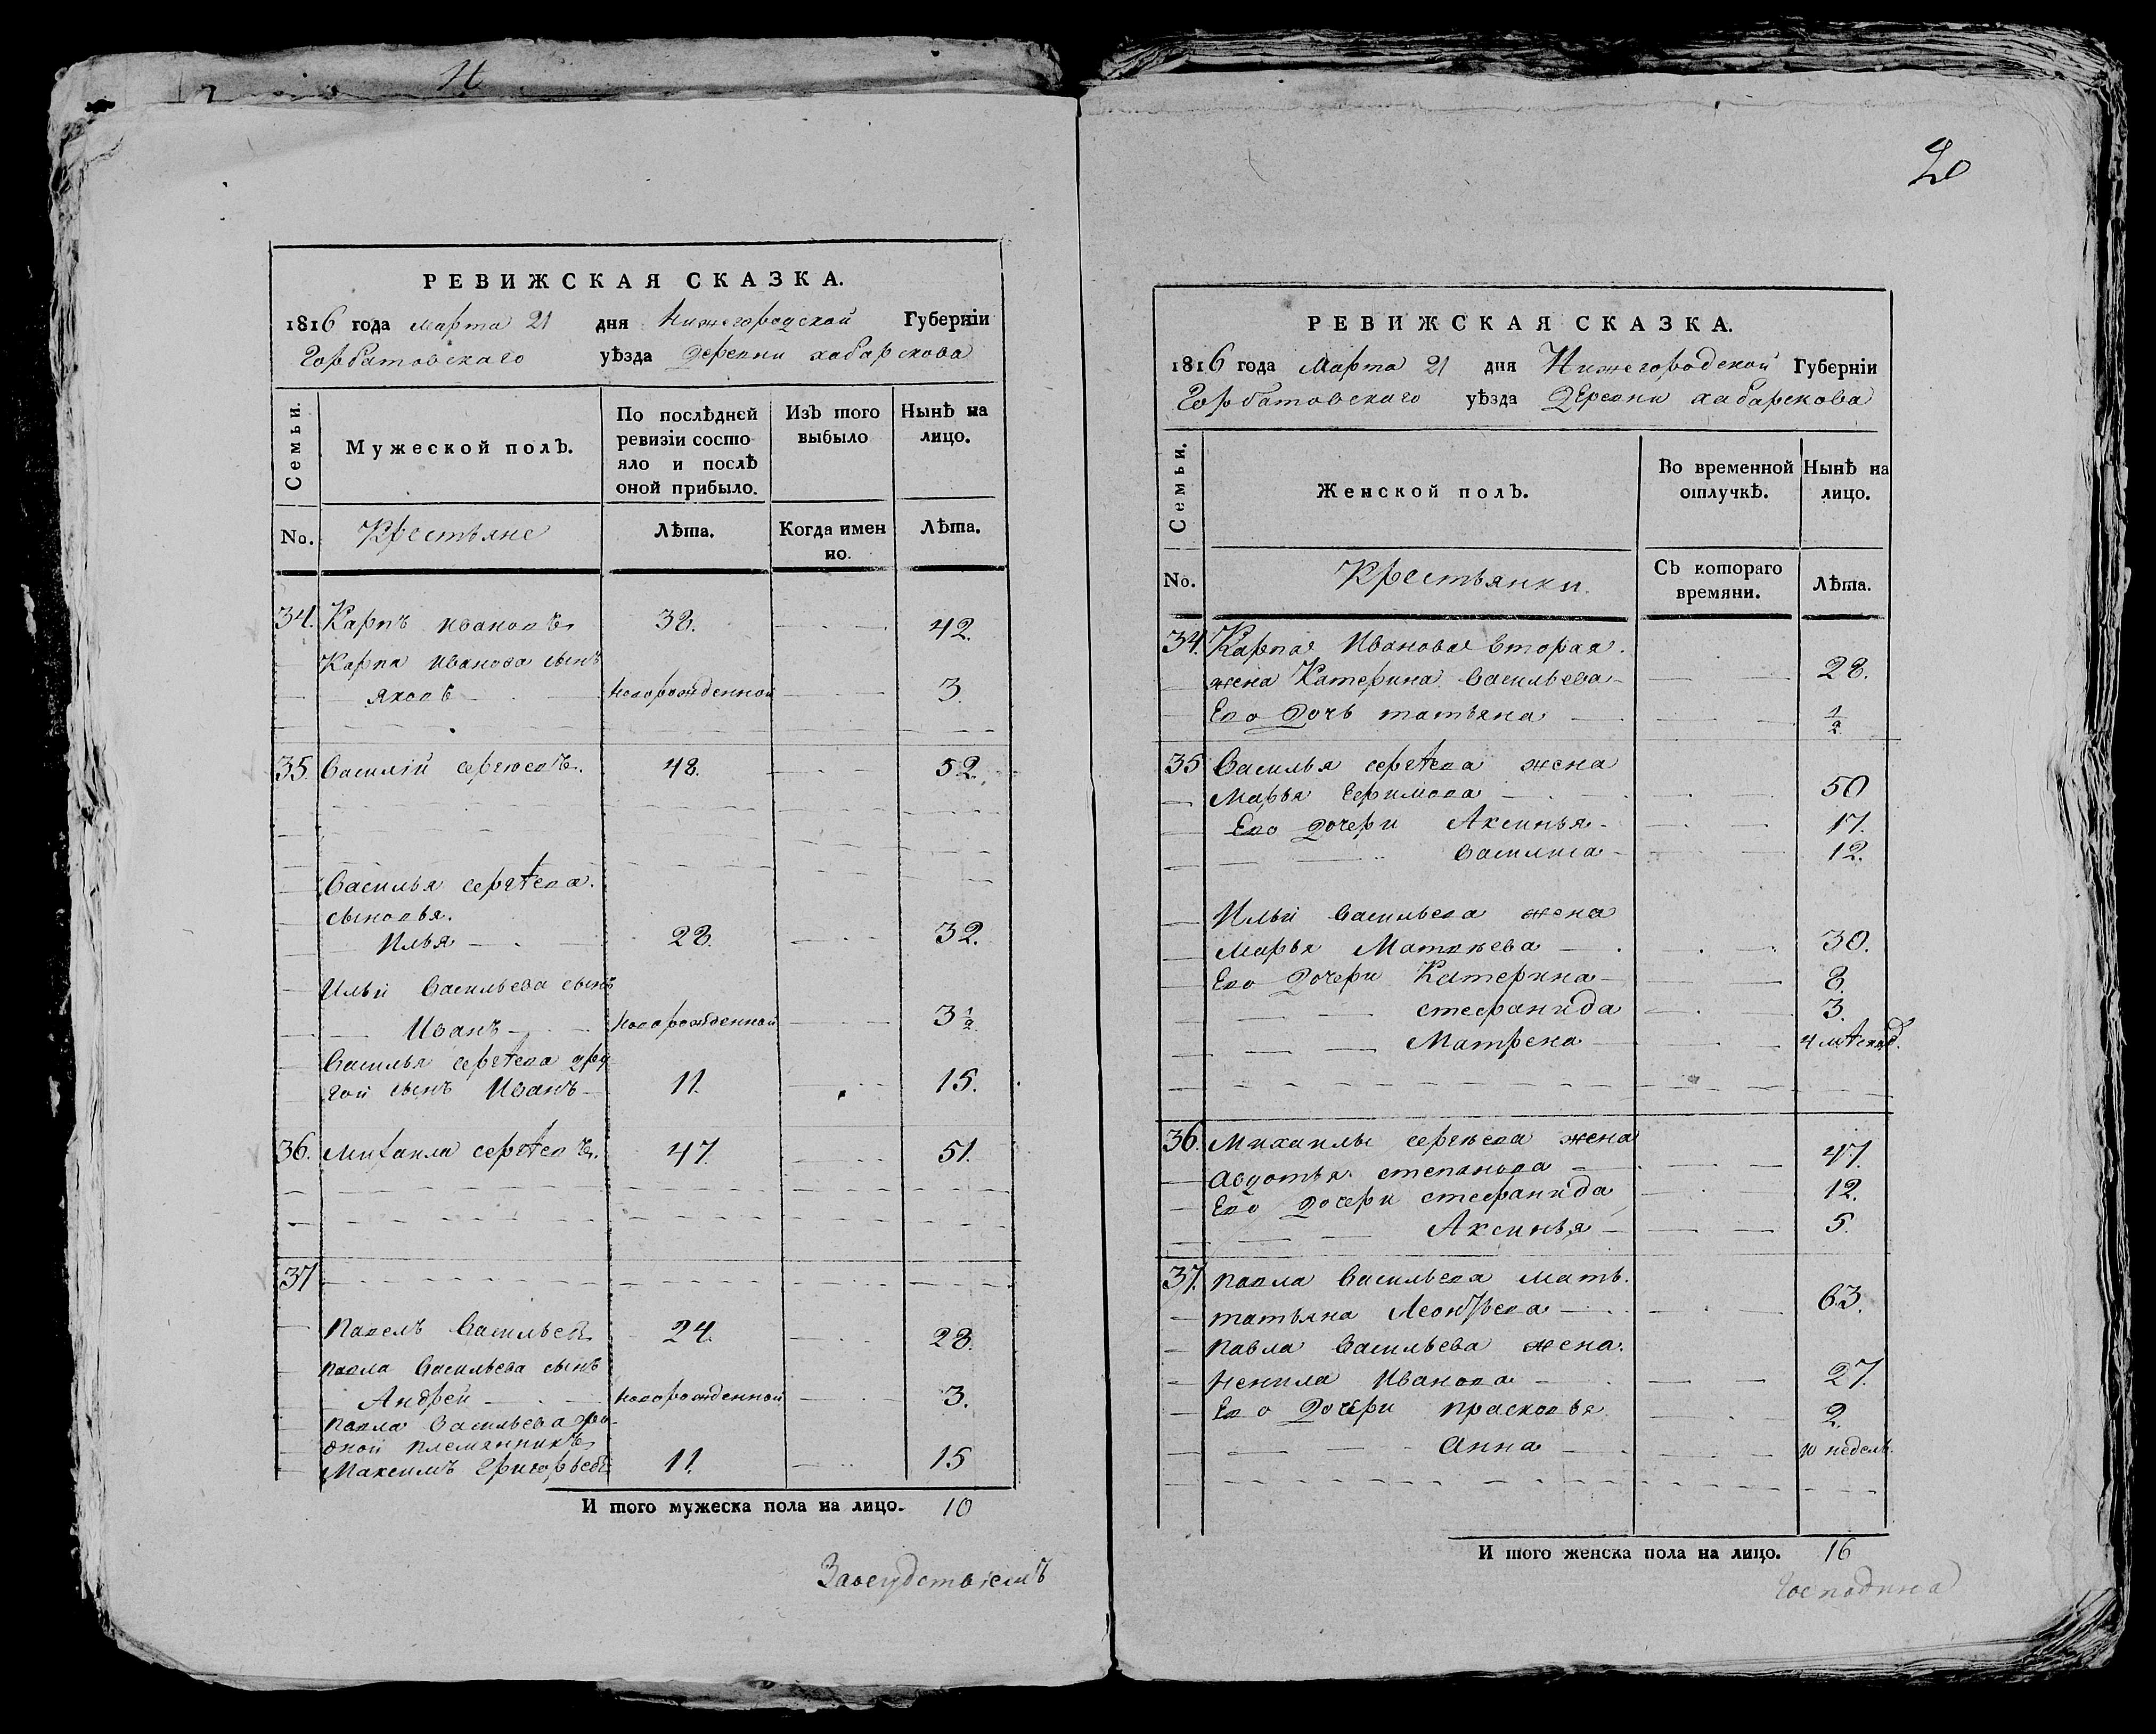 РЕВИЖСКАЯ СКАЗКА.
1816 года марта 21 дня Нижегородской Губерніи
Горбатовскаго уѣзда деревни хабарскова
Семьи.
Мужеской полъ.
По послѣдней ревизіи состояло и послѣ оной прибыло.
Изъ того выбыло
Нынѣ на лицо.
No.
Крестьяне
Лѣта.
Когда имен но.
Лѣта.
34. Карпъ Ивановъ 38. 42.
Карпа Иванова сынъ
яковъ новорожденной 3.
35. Василій сергѣевъ. 48. 52.
Василья сергѣева.
сыновья.
Илья 28. 32.
Ильи Васильева сынъ
Иванъ новорожденной 3 1/2
Василья сергѣева дру
гой сынъ Иванъ 11. 15.
36. Михаила сергѣевъ. 47. 51.
37
Павелъ Васильевъ 24. 28.
павла Васильева сынъ
Андрей новорожденной 3.
павла Васильева ро
дной племянникъ
Максимъ Григорьевъ 11. 15
И того мужеска пола на лицо. 10
2
РЕВИЖСКАЯ СКАЗКА.
1816 года Марта 21 дня Нижегородской Губерніи
Горбатовскаго уѣзда Деревни хабарскова
Семьи.
Женской полъ.
Во временной отлучкѣ.
Нынѣ на лицо.
No.
Крестьянки.
Съ котораго времяни.
Лѣта.
34. Карпа Иванова вторая.
жена Катерина Васильева 28.
Ево Дочь татьяна 1/2
35 Василья сергѣева жена
Марья Ефимова 50
Ево дочери Аксинья 17.
Василиса 12.
Ильи Васильева жена
Марья Матвѣева 30.
Ево Дочери Катерина 8.
стефанида 3.
Матрена 4 мѣсяц.
36. Михаилы сергѣева жена
авдотья степанова 47.
Ево дочери стефанида 12.
Аксинья 5.
37. павла Васильева мать.
татьяна Леонтьева 63.
павла Васильева жена.
ненила Иванова 27.
Ево Дочери прасковья 2.
анна 10 недель.
И того женска пола на лицо. 16
Господина